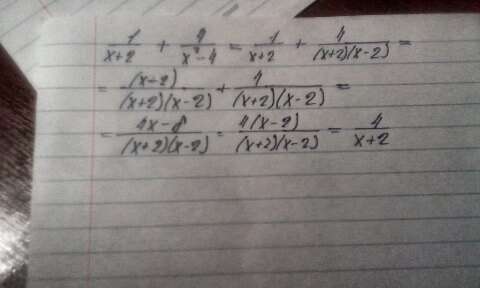 1/(x+2) + 4/(x²-4) = 1/(x+2) + 4/((x+2)(x-2)) =
= (x-2)/((x+2)(x-2)) + 4/((x+2)(x-2)) =
= (4x-8)/((x+2)(x-2)) = 4(x-2)/((x+2)(x-2)) = 4/(x+2)